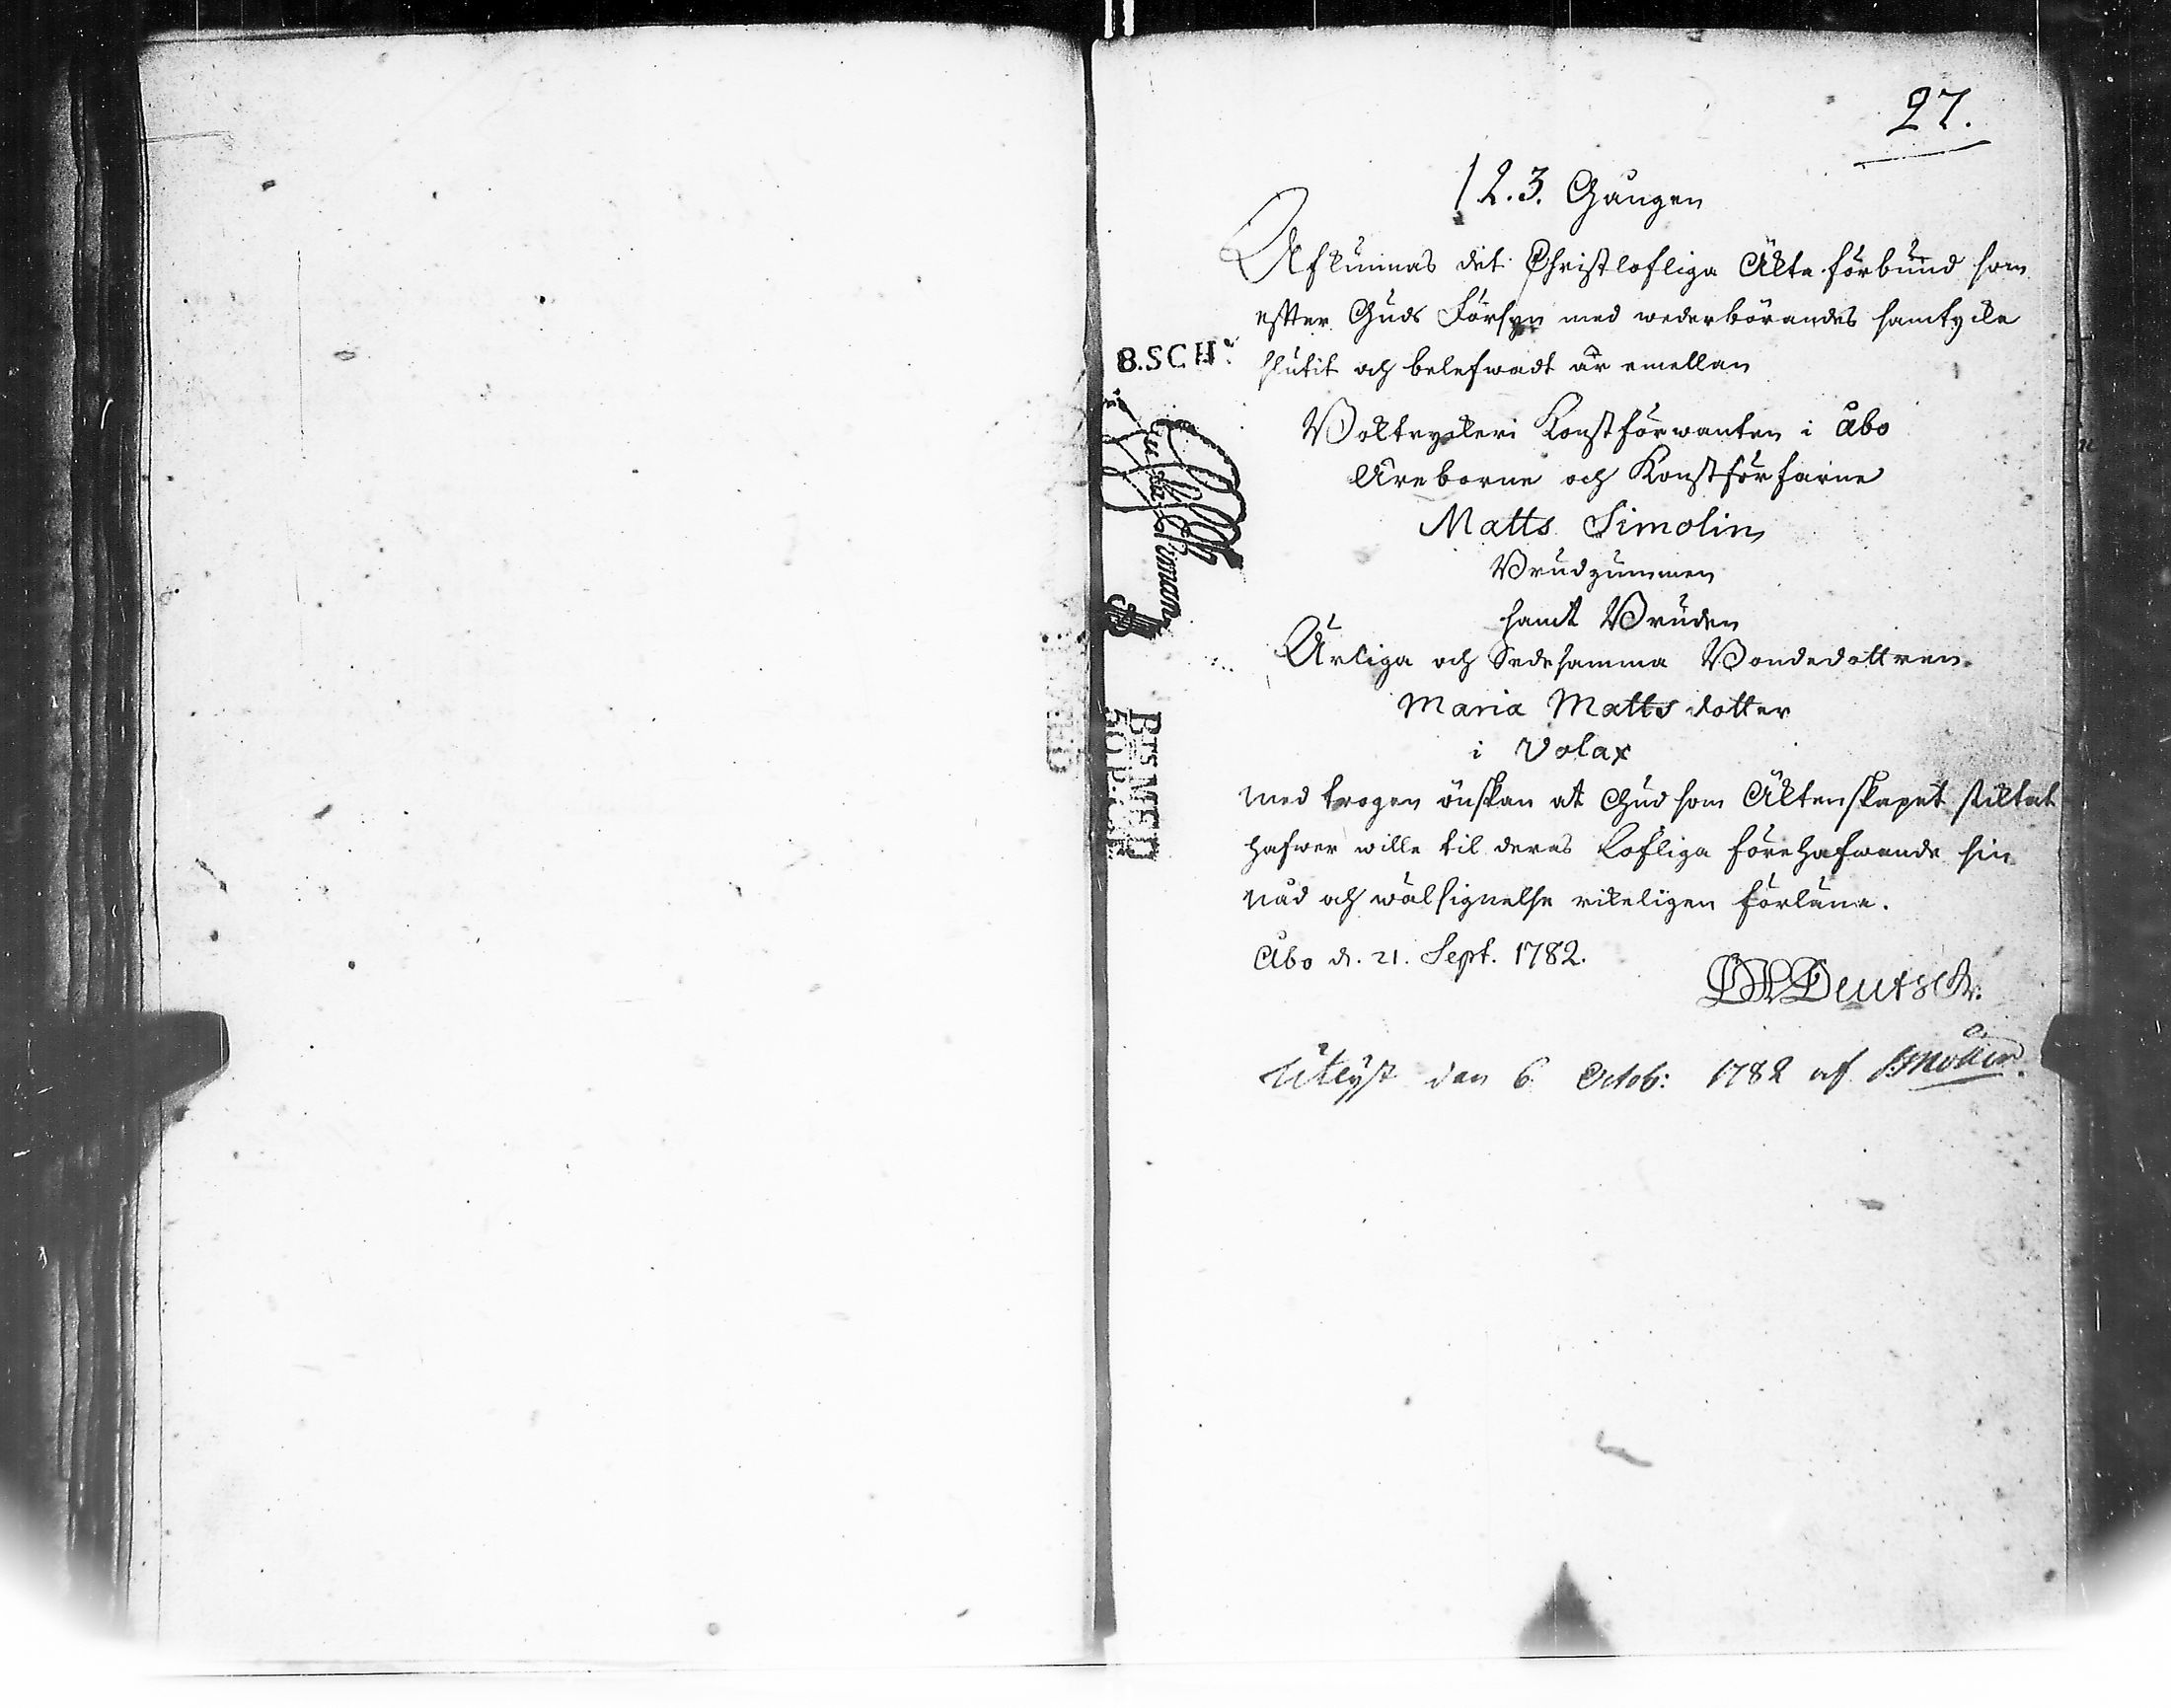 27.
1 2. 3. Gången
Aflÿsnas det Christlofliga Ächta förbund som
efter Guds Försyn med wederbörandes samtycke
slutit och belefwadt är emellan
B.SCH
Boktryckeri Konstförwanten i Åbo
Äreborne och Konstförfarne
Matts Simolin
Brudgummen
samt Bruden
Ärliga och Sedesamma Bondedottren
Maria Matts dotter
i Volax
med trogen önskan at Gud som Äktenskapet stiktat
hafwer wille til deras Lofliga förehafwande sin
nåd och wälsignelse rikeligen förläna.
Åbo d. 21. Sept. 1782.
Deutsch.
Utlyst den 6 Octob: 1782 af